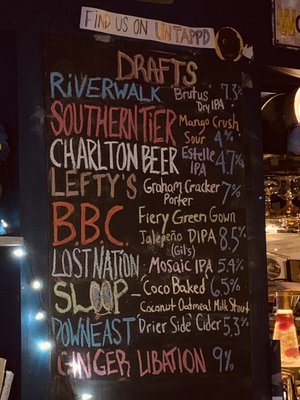 FIND US ON UNTAPPD
DRAFTS
RIVERWALK Brutus 7.3%
Dry IPA
SOUTHERN TIER Mango Crush
Sour 4%
CHARLTON BEER Estelle 4.7%
IPA
LEFTY'S Graham Cracker 7%
Porter
B.B.C. Fiery Green Gown
Jalapeño DIPA 8.5%
(Gils)
LOST NATION Mosaic IPA 5.4%
SLOOP - Coco Baked 6.5%
Coconut Oatmeal Milk Stout
DOWNEAST Drier Side Cider 5.3%
GINGER LIBATION 9%